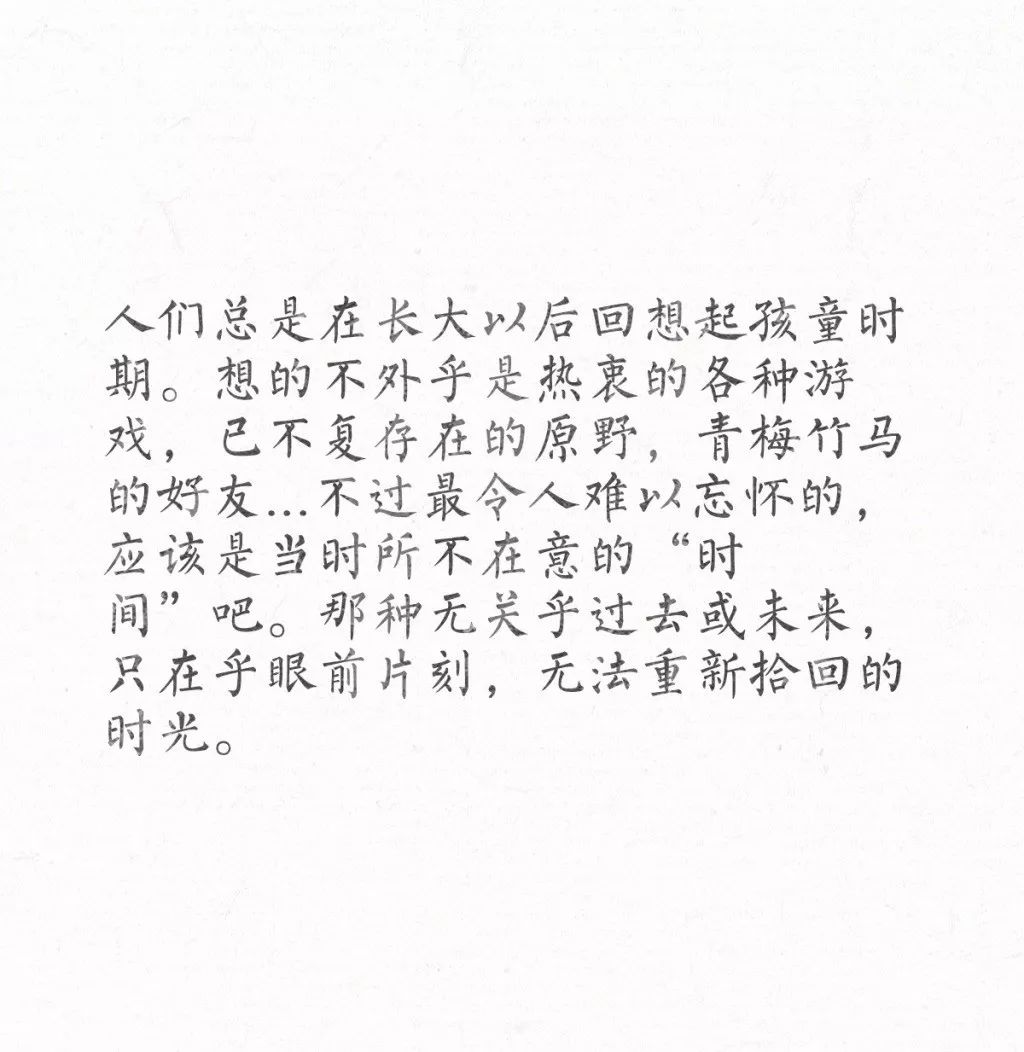 人们总是在长大以后回想起孩童时
期。想的不外乎是热衷的各种游
戏，已不复存在的原野，青梅竹马
的好友...不过最令人难以忘怀的，
应该是当时所不在意的“时
间”吧。那种无关乎过去或未来，
只在乎眼前片刻，无法重新拾回的
时光。